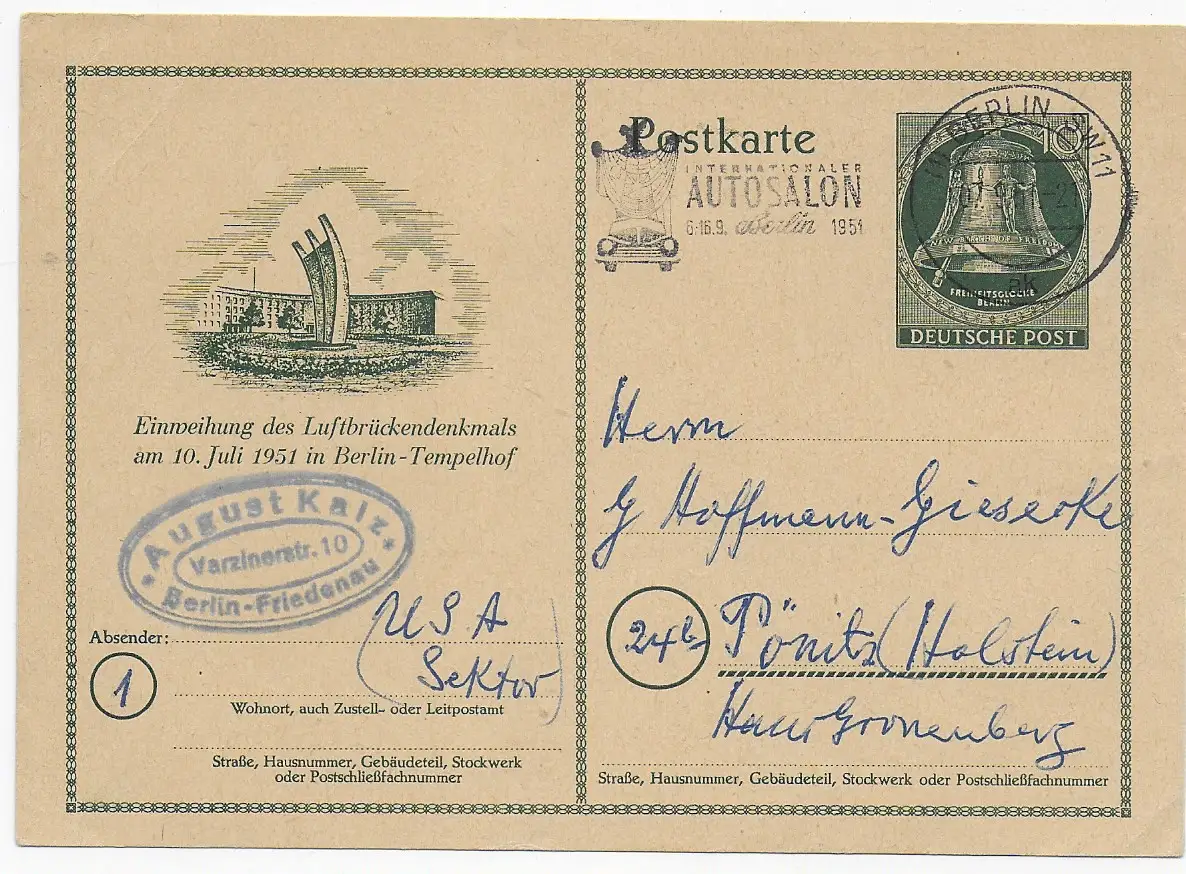 Postkarte
INTERNATIONALER
AUTOSALON
6.-16.9. Berlin 1951
BERLIN SW 11
10
FREIHEITSGLOCKE
BERLIN
DEUTSCHE POST
Einweihung des Luftbrückendenkmals
am 10. Juli 1951 in Berlin-Tempelhof
* August Kalz *
Varzinerstr. 10
Berlin-Friedenau
Absender:
1
(USA
Sektor)
Wohnort, auch Zustell- oder Leitpostamt
Straße, Hausnummer, Gebäudeteil, Stockwerk
oder Postschließfachnummer
Herrn
G Hoffmann-Giesecke
24b Pönitz (Holstein)
Haus Gronenberg
Straße, Hausnummer, Gebäudeteil, Stockwerk oder Postschließfachnummer